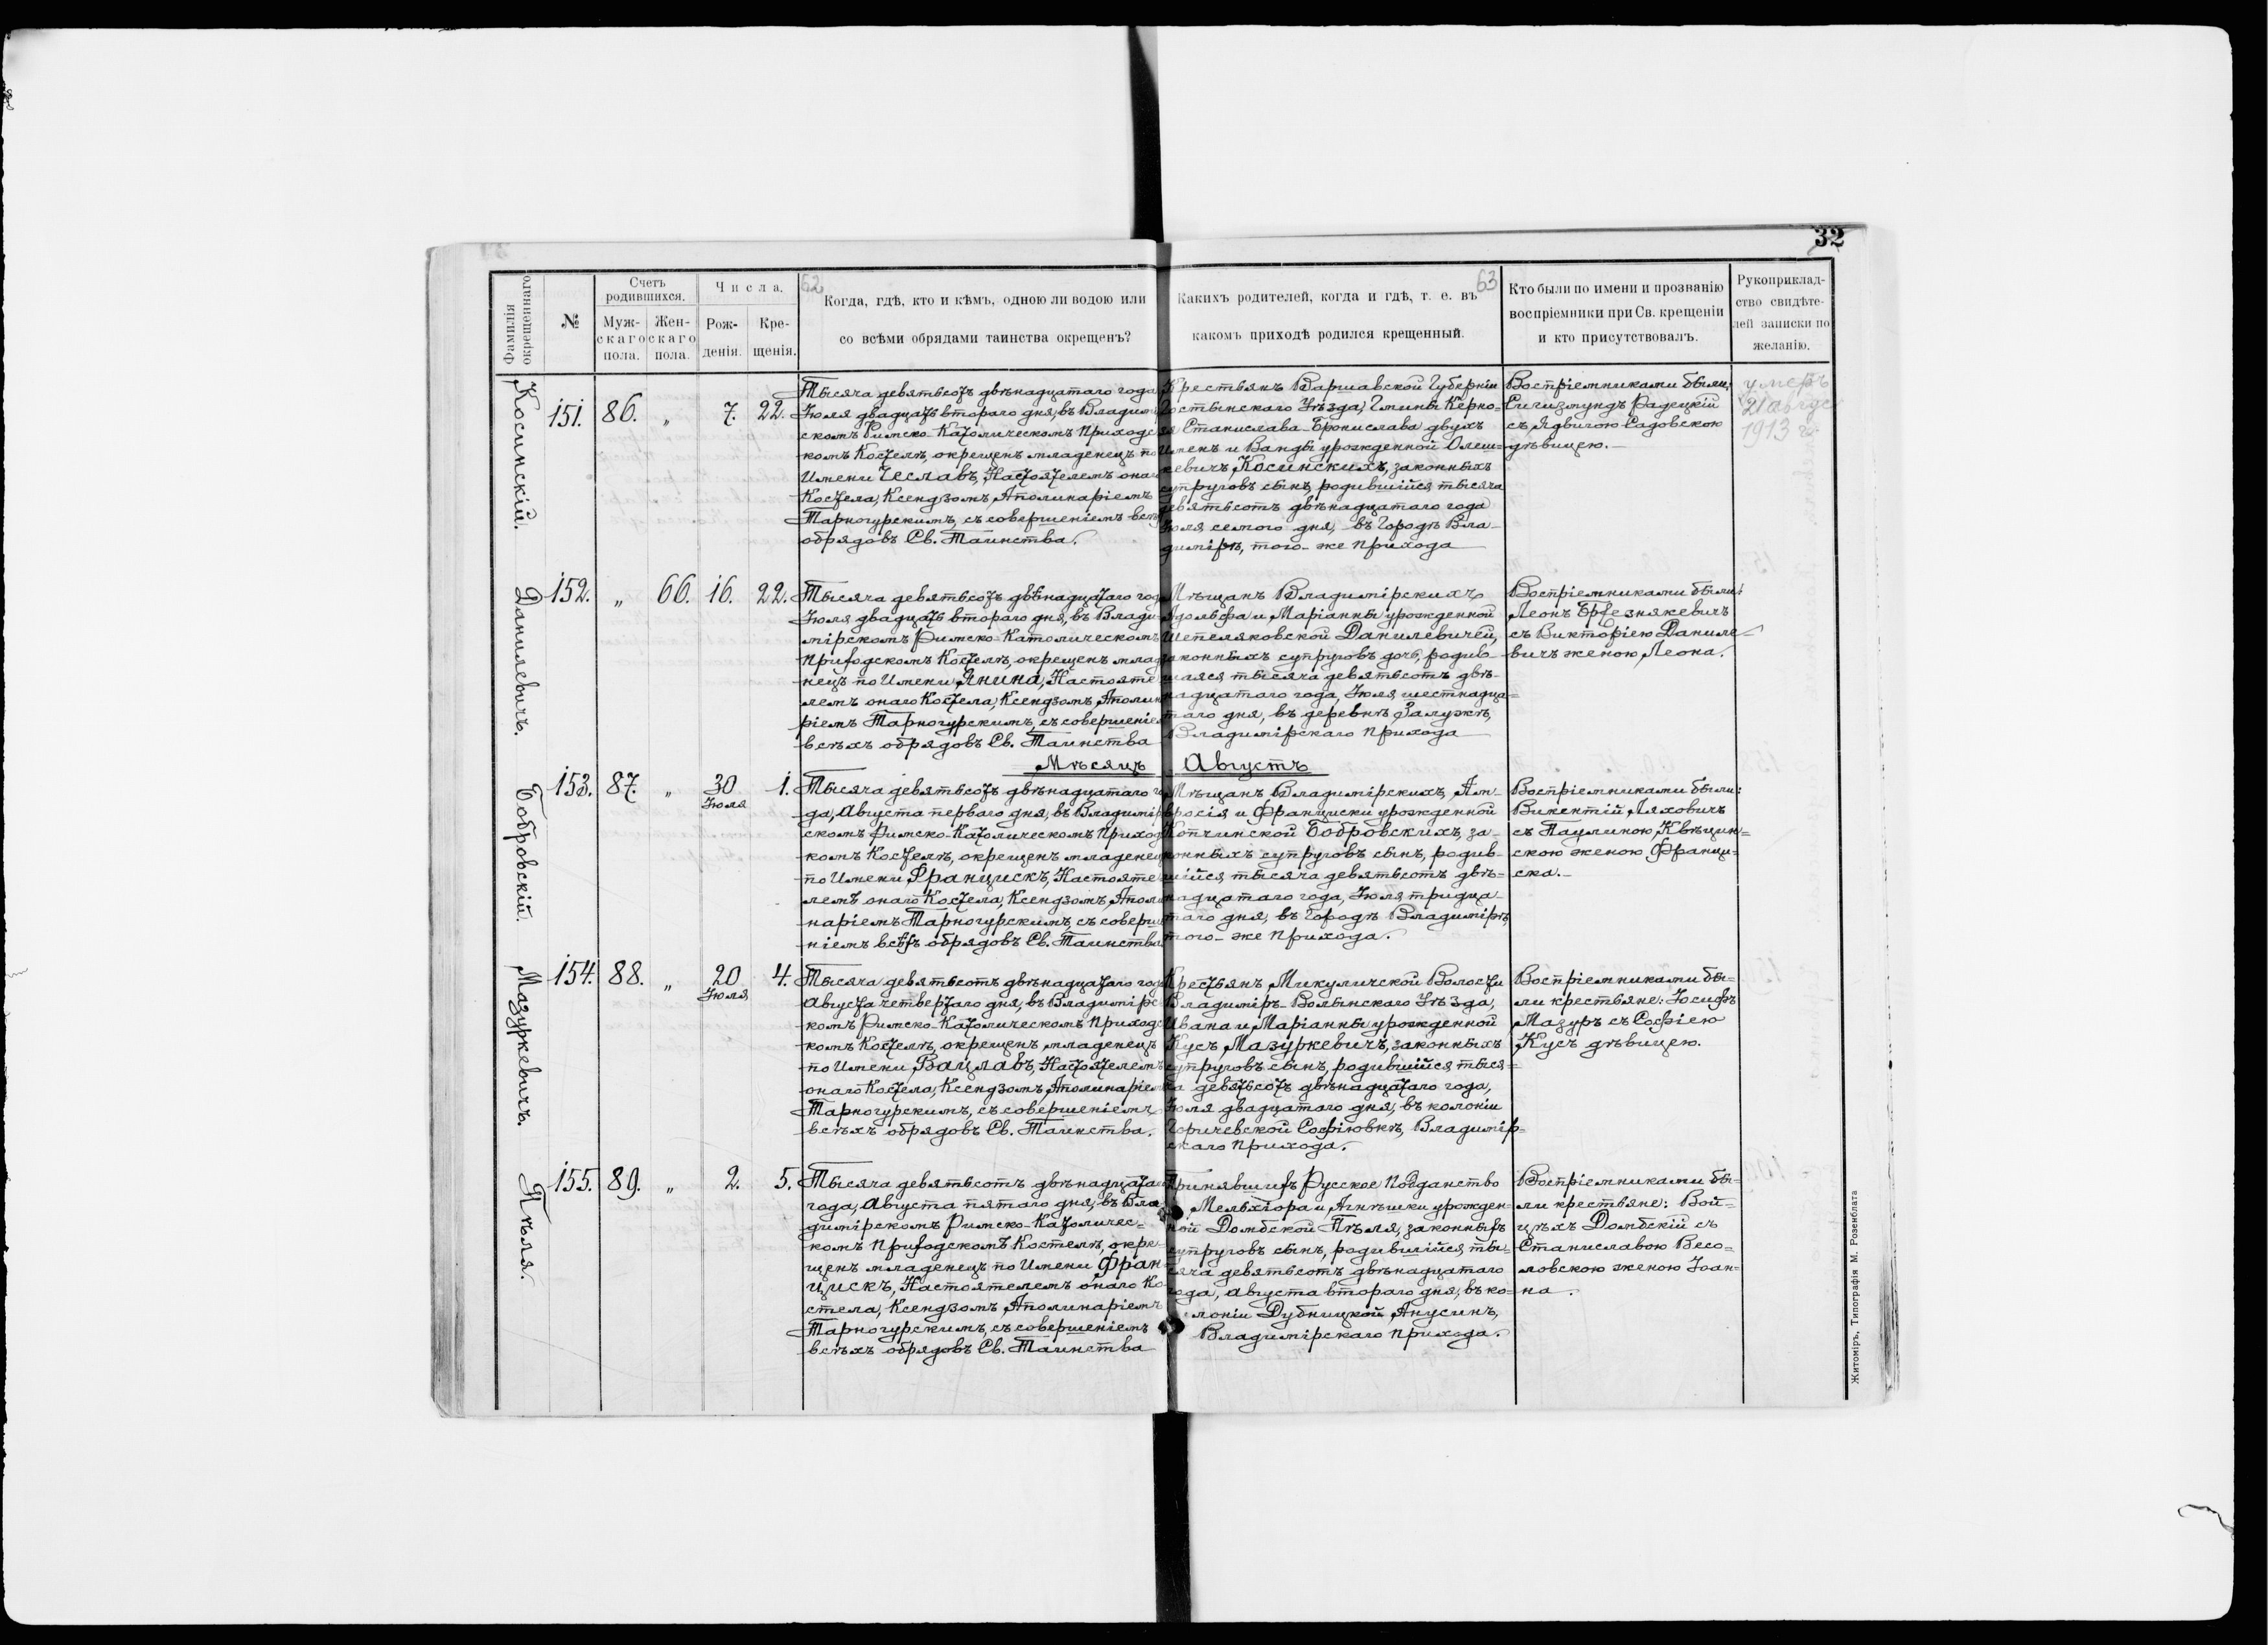 32
62
63
Фамилія окрещеннаго
№
Счетъ родившихся.
Муж-скаго пола.
Жен-скаго пола.
Числа.
Рож-денія.
Кре-щенія.
Когда, гдѣ, кто и кѣмъ, одною ли водою или
со всѣми обрядами таинства окрещенъ?
Какихъ родителей, когда и гдѣ, т. е. въ
какомъ приходѣ родился крещенный.
Кто были по имени и прозванію
воспріемники при Св. крещеніи
и кто присутствовалъ.
Рукоприклад-
ство свидѣте-
лей записки по
желанію.
Косинскій.
151. 86. „ 7. 22.
Тысяча девятьсотъ двѣнадцатаго года
Іюля двадцать втораго дня, въ Владимі
скомъ Римско-Католическомъ Приходс
комъ Костелѣ, окрещенъ младенецъ по
Имени Чеславъ, Настоятелемъ онаго
Костела, Ксендзомъ, Аполинаріемъ
Тарногурскимъ, съ совершеніемъ всѣхъ
обрядовъ Св. Таинства.
Крестьянъ Варшавской Губерніи
Гостынскаго Уѣзда, Гмины Керно=
зя Станислава-Бронислава двухъ
Именъ и Ванды урожденной Олеш=
кевичъ, Косинскихъ, законныхъ
супруговъ сынъ, родившійся тысяча
девятьсотъ двѣнадцатаго года
Іюля семого дня, въ Городѣ Вла-
димірѣ, того-же Прихода
Воспріемниками были:
Сигизмундъ Радецкій
съ Ядвигою Садовскою
дѣвицею.
умеръ
21 авгус
1913 г.
Данилевичъ.
152. „ 66. 16. 22.
Тысяча девятьсотъ двѣнадцатаго года
Іюля двадцать втораго дня, въ Влади-
мірскомъ Римско-Католическомъ
Приходскомъ Костелѣ, окрещенъ млад
нецъ по Имени Янина, Настояте
лемъ онаго Костела, Ксендзомъ, Аполин
ріемъ Тарногурскимъ, съ совершеніе
всѣхъ обрядовъ Св. Таинства
Мѣщанъ Владимірскихъ
Адольфа и Маріанны урожденной
Шепеляковской Данилевичей,
законныхъ супруговъ дочь, родив-
шаяся тысяча девятьсотъ двѣ-
надцатаго года, Іюля, шестнадца=
таго дня, въ деревнѣ Залужѣ,
Владимірскаго Прихода
Воспріемниками были:
Леонъ Бржезнякевичъ
съ Викторіею Даниле-
вичъ женою Леона.
Мѣсяцъ Августъ
Бобровскій.
153. 87. „ 30 Іюля 1.
Тысяча девятьсотъ двѣнадцатаго го
да, Августа перваго дня, въ Владимір
скомъ Римско-Католическомъ Приход
комъ Костелѣ, окрещенъ младенец
по Имени Францискъ, Настояте
лемъ онаго Костела, Ксендзомъ, Аполи
наріемъ Тарногурскимъ, съ соверше
ніемъ всѣхъ обрядовъ Св. Таинства
Мѣщанъ Владимірскихъ, Ам-
вросія и Франциски урожденной
Копчинской Бобровскихъ, за-
конныхъ супруговъ сынъ, родив-
шійся тысяча девятьсотъ двѣ=
надцатаго года, Іюля, тридца-
таго дня, въ Городѣ Владимірѣ,
того-же Прихода.
Воспріемниками были:
Викентій Ляховичъ
съ Паулиною Квѣцин=
скою женою Франци=
ска.
Мазуркевичъ.
154. 88. „ 20 Іюля 4.
Тысяча девятьсотъ двѣнадцатаго года
Августа четвертаго дня, въ Владимірс
комъ Римско-Католическомъ Приходс
комъ Костелѣ, окрещенъ младенецъ
по Имени Вацлавъ, Настоятелемъ
онаго Костела, Ксендзомъ, Аполинаріем
Тарногурскимъ, съ совершеніемъ
всѣхъ обрядовъ Св. Таинства.
Крестьянъ Микуличской Волости
Владиміръ-Волынскаго Уѣзда,
Ивана и Маріанны урожденной
Кусъ, Мазуркевичъ, законныхъ
супруговъ сынъ, родившійся тыся=
ча девятьсотъ двѣнадцатаго года,
Іюля двадцатаго дня, въ колоніи
Горичевской Софіювкѣ, Владимір=
скаго Прихода.
Воспріемниками бы-
ли крестьяне: Іосифъ
Мазуръ съ Софіею
Кусъ дѣвицею.
Пѣля.
155. 89. „ 2. 5.
Тысяча девятьсотъ двѣнадцатаго
года, Августа пятаго дня, въ Вла
димірскомъ Римско-Католичес=
комъ Приходскомъ Костелѣ, окре-
щенъ младенецъ по Имени Фран-
цискъ, Настоятелемъ онаго Ко-
стела, Ксендзомъ, Аполинаріемъ
Тарногурскимъ, съ совершеніемъ
всѣхъ обрядовъ Св. Таинства
Принявшихъ Русское Подданство
Мельхіора и Агнѣшки урожден=
ной Домбской Пѣля, законныхъ
супруговъ сынъ, родившійся, ты-
сяча девятьсотъ двѣнадцатаго
года, Августа втораго дня, въ ко-
лоніи Дубницкой Анусинъ,
Владимірскаго Прихода.
Воспріемниками бы-
ли крестьяне: Вой=
цѣхъ Домбскій съ
Станиславою Весо=
ловскою женою Іоан=
на.
Житоміръ, Типографія М. Розенблата